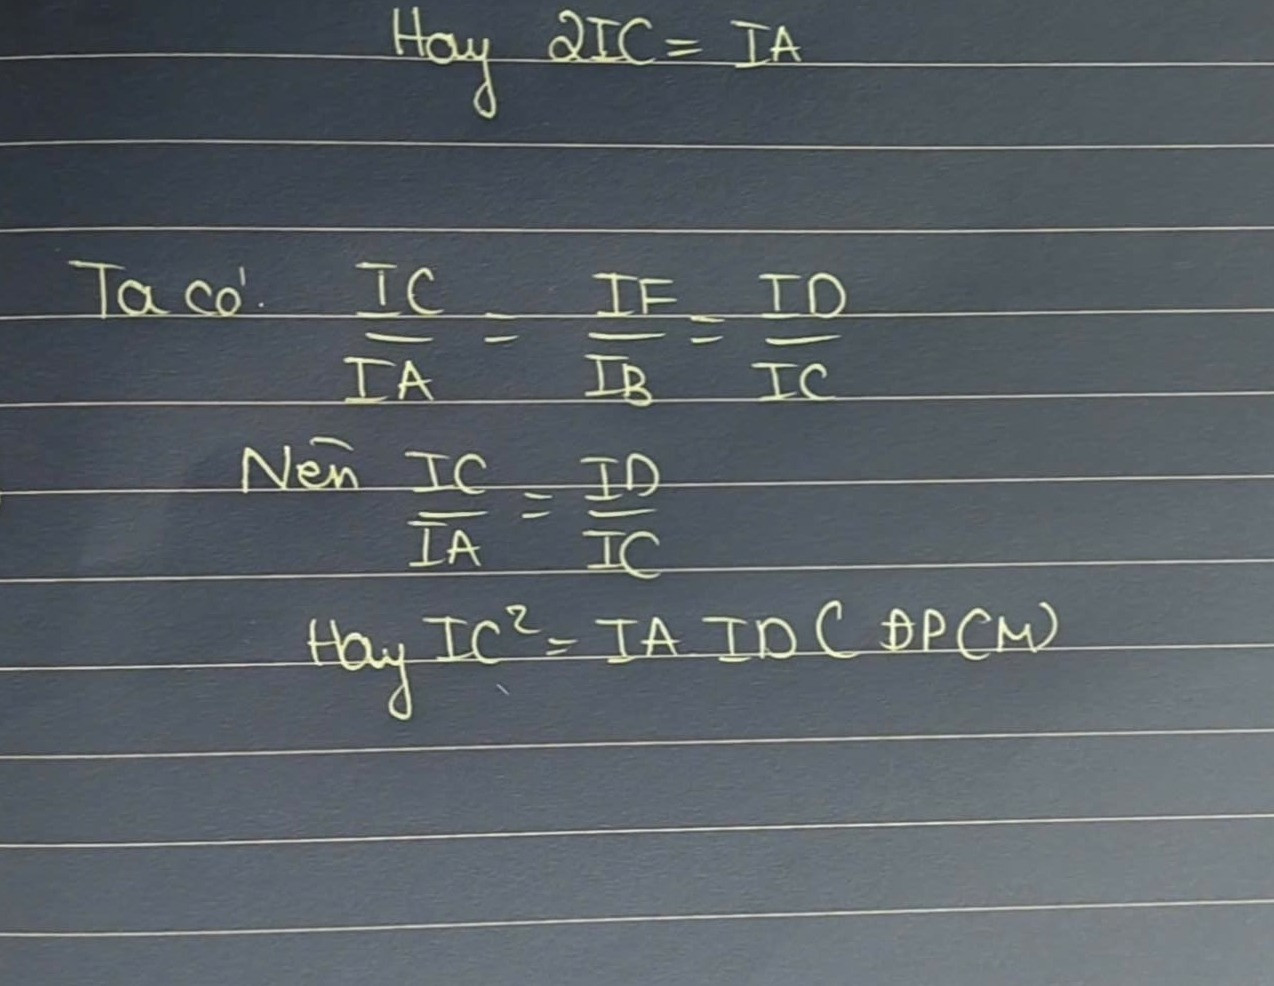 Hay 2IC = IA
Ta có. IC/IA = IF/IB = ID/IC
Nên IC/IA = ID/IC
Hay IC² = IA ID (ĐPCM)